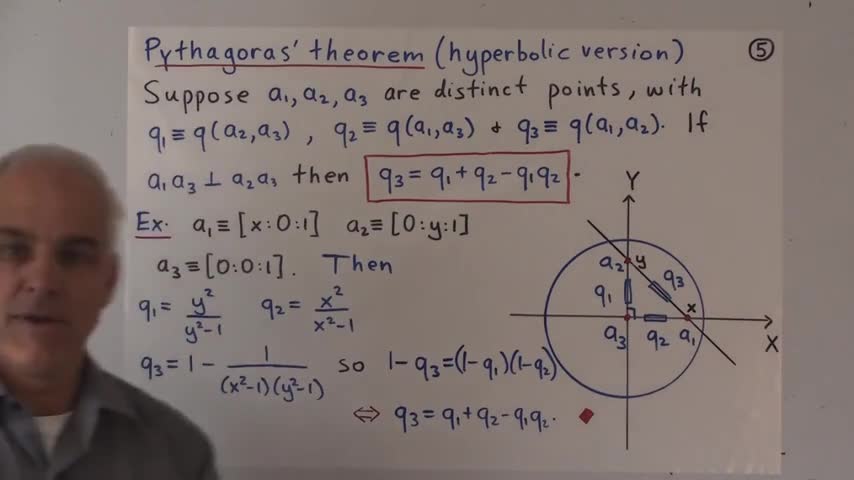 Pythagoras' theorem (hyperbolic version) ⑤
Suppose a₁, a₂, a₃ are distinct points, with
q₁ ≡ q(a₂,a₃) , q₂ ≡ q(a₁,a₃) & q₃ ≡ q(a₁,a₂). If
a₁a₃ ⊥ a₂a₃ then q₃ = q₁ + q₂ − q₁q₂ .
Ex: a₁ ≡ [x:0:1] a₂ ≡ [0:y:1]
a₃ ≡ [0:0:1]. Then
q₁ = y²/(y²−1) q₂ = x²/(x²−1)
q₃ = 1 − 1/((x²−1)(y²−1)) so 1−q₃ = (1−q₁)(1−q₂)
⇔ q₃ = q₁ + q₂ − q₁q₂.
Y
a₂ y
q₁ q₃
x
a₃ q₂ a₁
X